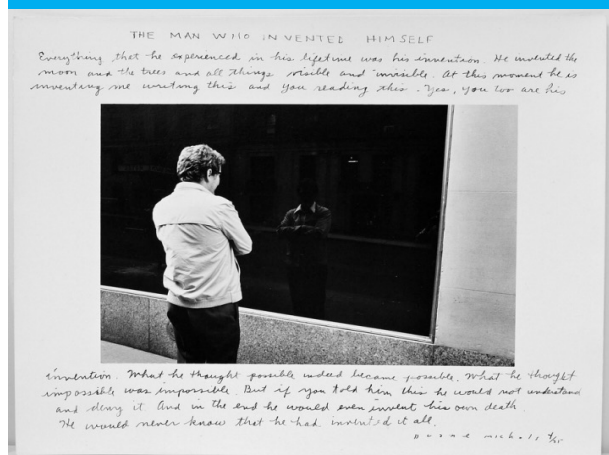 THE MAN WHO INVENTED HIMSELF
Everything that he experienced in his lifetime was his invention. He invented the
moon and the trees and all things visible and invisible. At this moment he is
inventing me writing this and you reading this. Yes, you too are his
invention. What he thought possible indeed became possible. What he thought
impossible was impossible. But if you told him this he would not understand
and deny it. And in the end he would even invent his own death.
He would never know that he had invented it all.
Duane Michals